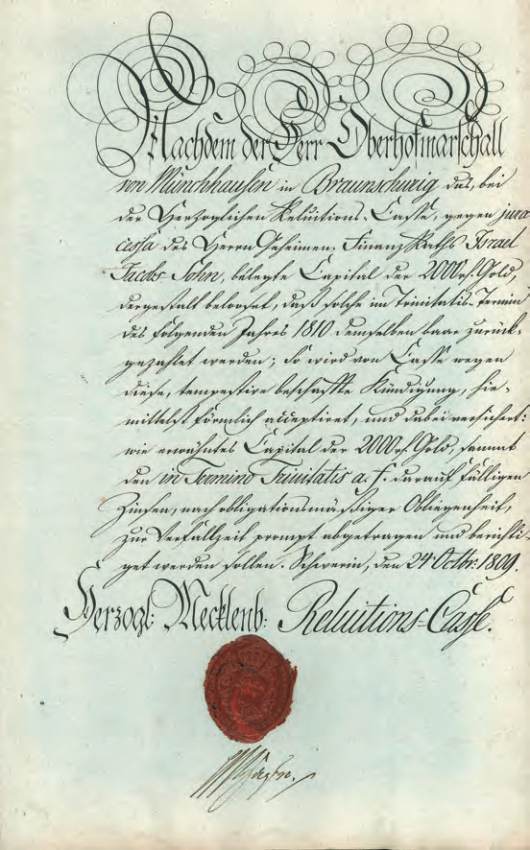 Nachdem der Herr Oberhofmarschall
von Münchhausen in Braunschweig das, bei
der Herzoglichen Reluitions-Casse, gegen jura
cessa des Herrn Geheimen-Finanz Raths Israel
Jacobs Sohn, belegte Capital der 2000 rt. Gold,
dergestalt belooset, daß solche im Trinitatis-Termin
des folgenden Jahres 1810 demselben baar zurück-
gezahlet werden; so wird von Casse wegen
diese, tempestive beschaffte Kündigung, hie-
mittelst förmlich acceptiret, und dabei versichert:
wie erwähntes Capital der 2000 rt. Gold, sammt
den in Termino Trinitatis a. f. darauf fälligen
Zinsen, nach obligationsmäßiger Obliegenheit,
zur Verfallzeit prompt abgetragen und berichti-
get werden sollen. Schwerin, den 24 Octbr. 1809.
Herzogl: Mecklenb: Reluitions-Casse.